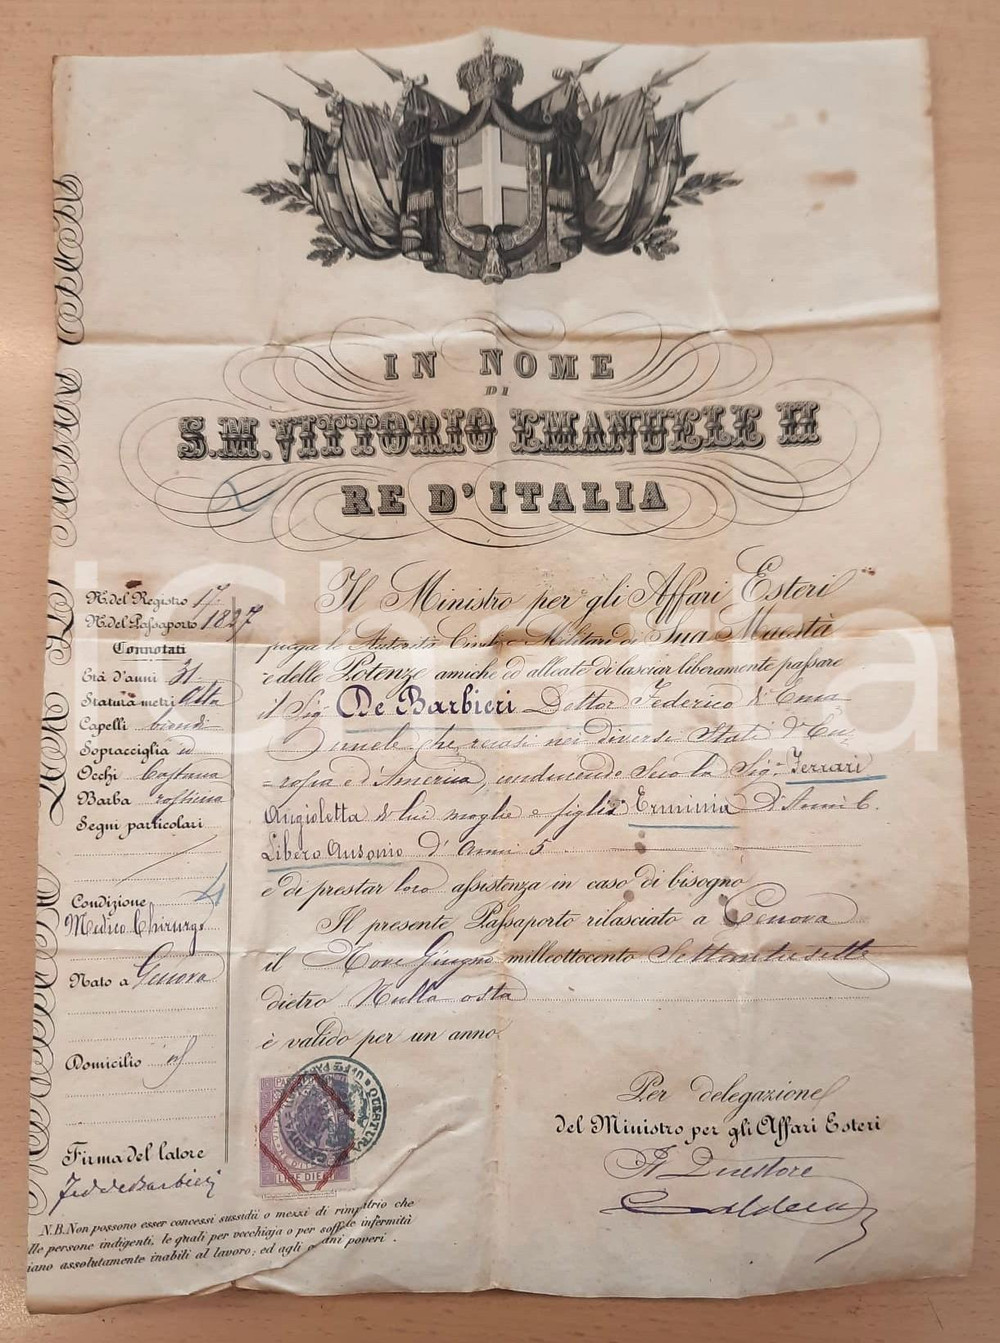 IN NOME
DI
S.M. VITTORIO EMANUELE II
RE D'ITALIA
N. del Registro 17
N. del Passaporto 1827
Connotati
Età d'anni 31
Statura metri Alta
Capelli biondi
Sopracciglia id
Occhi Castano
Barba
Segni particolari
Condizione
Medico Chirurgo
Nato a Genova
Domicilio id
Firma del latore
Fed deBarbieri
Il Ministro per gli Affari Esteri
prega le Autorità Civili e Militari di Sua Maestà
e delle Potenze amiche ed alleate di lasciar liberamente passare
il Sig. De Barbieri Dottor Federico di Ema
nuele che recasi nei diversi Stati d'Eu
ropa e d'America, conducendo seco la Sig.a Ferrari
Angioletta di lui moglie e figli Erminia d'Anni 6.
Libero Ausonio d'Anni 5
e di prestar loro assistenza in caso di bisogno
Il presente Passaporto rilasciato a Genova
il Nove Giugno milleottocento Settantasette
dietro Nulla osta
è valido per un anno.
Per delegazione
del Ministro per gli Affari Esteri
Il Questore
LIRE DIECI
QUESTURA
N.B. Non possono esser concessi sussidii o mezzi di rimpatrio che
lle persone indigenti, le quali per vecchiaja o per soff de infermità
iano assolutamente inabili al lavoro; ed agli o ani poveri.